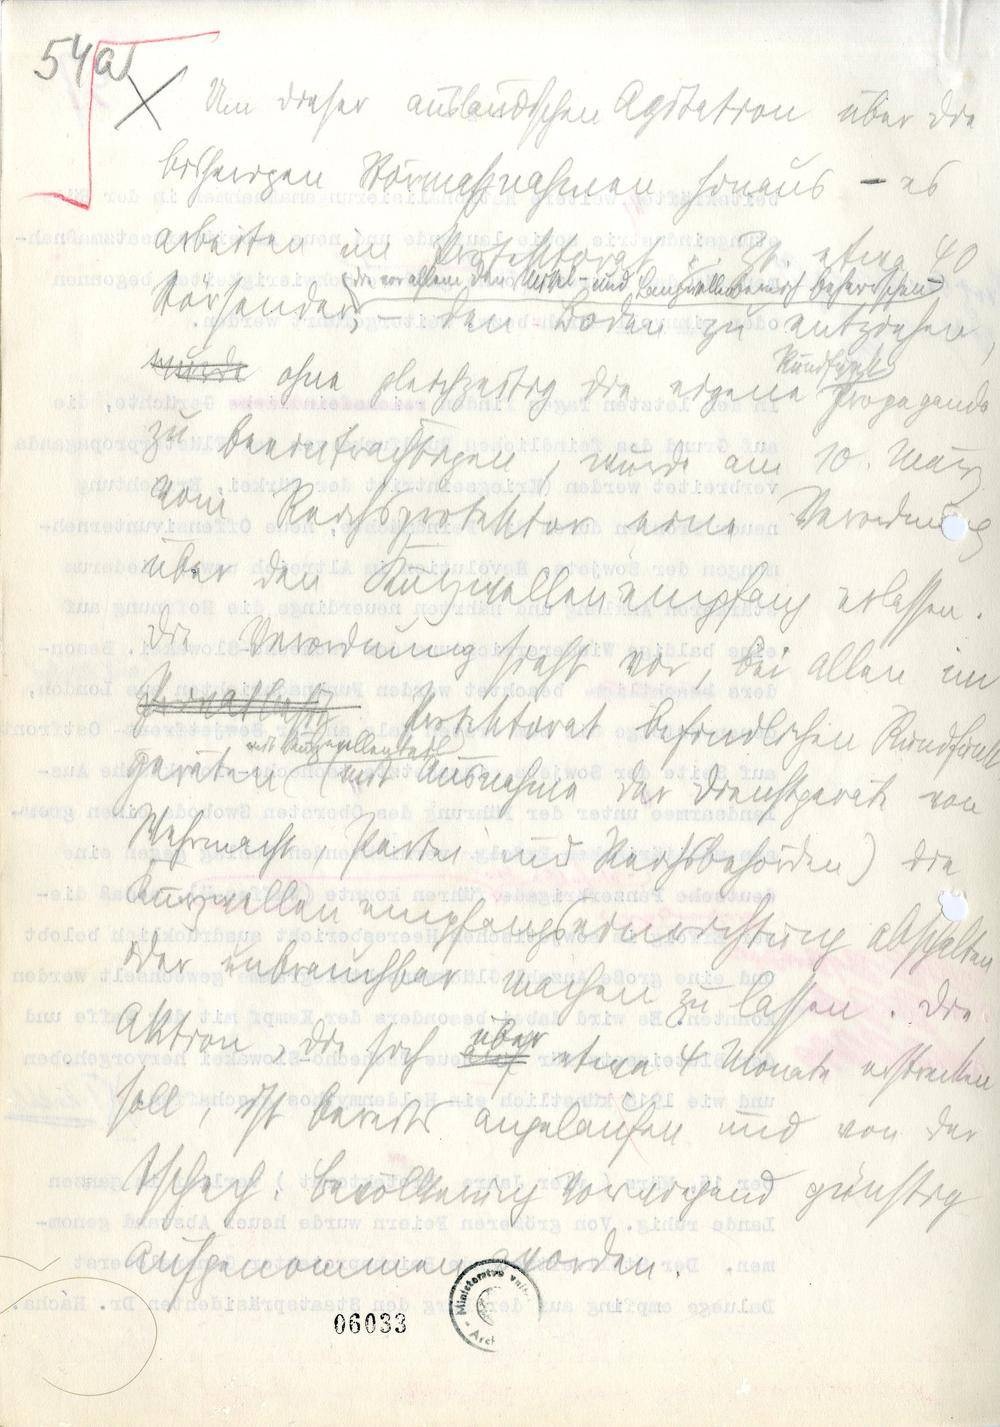 54a
Um dieser ausländischen Agitation über die
bisherigen Störmaßnahmen hinaus – es
arbeiten im Protektorat z. Zt. etwa 40
(die vor allem den Mittel- und Langwellenbereich beherrschen)
Störsender – den Boden zu entziehen,
wurde ohne gleichzeitig die eigene Rundfunk
Propaganda
zu beeinträchtigen, wurde am 10. März
vom Reichsprotektor eine Verordnung
über den Kurzwellenempfang erlassen.
Die Verordnung sieht vor, bei allen im
Privatbesitz Protektorat befindlichen Rundfunk
mit Kurzwellenteil
geräten (mit Ausnahme der Dienstgeräte von
Wehrmacht, Partei und Reichsbehörden) die
Kurzwellenempfangseinrichtung abschalten
oder unbrauchbar machen zu lassen. Die
über
Aktion, die sich auf etwa 4 Monate erstrecken
soll, ist bereits angelaufen und von der
tschech. Bevölkerung vorwiegend günstig
aufgenommen worden.
06033
Ministerstvo vnit
Arch